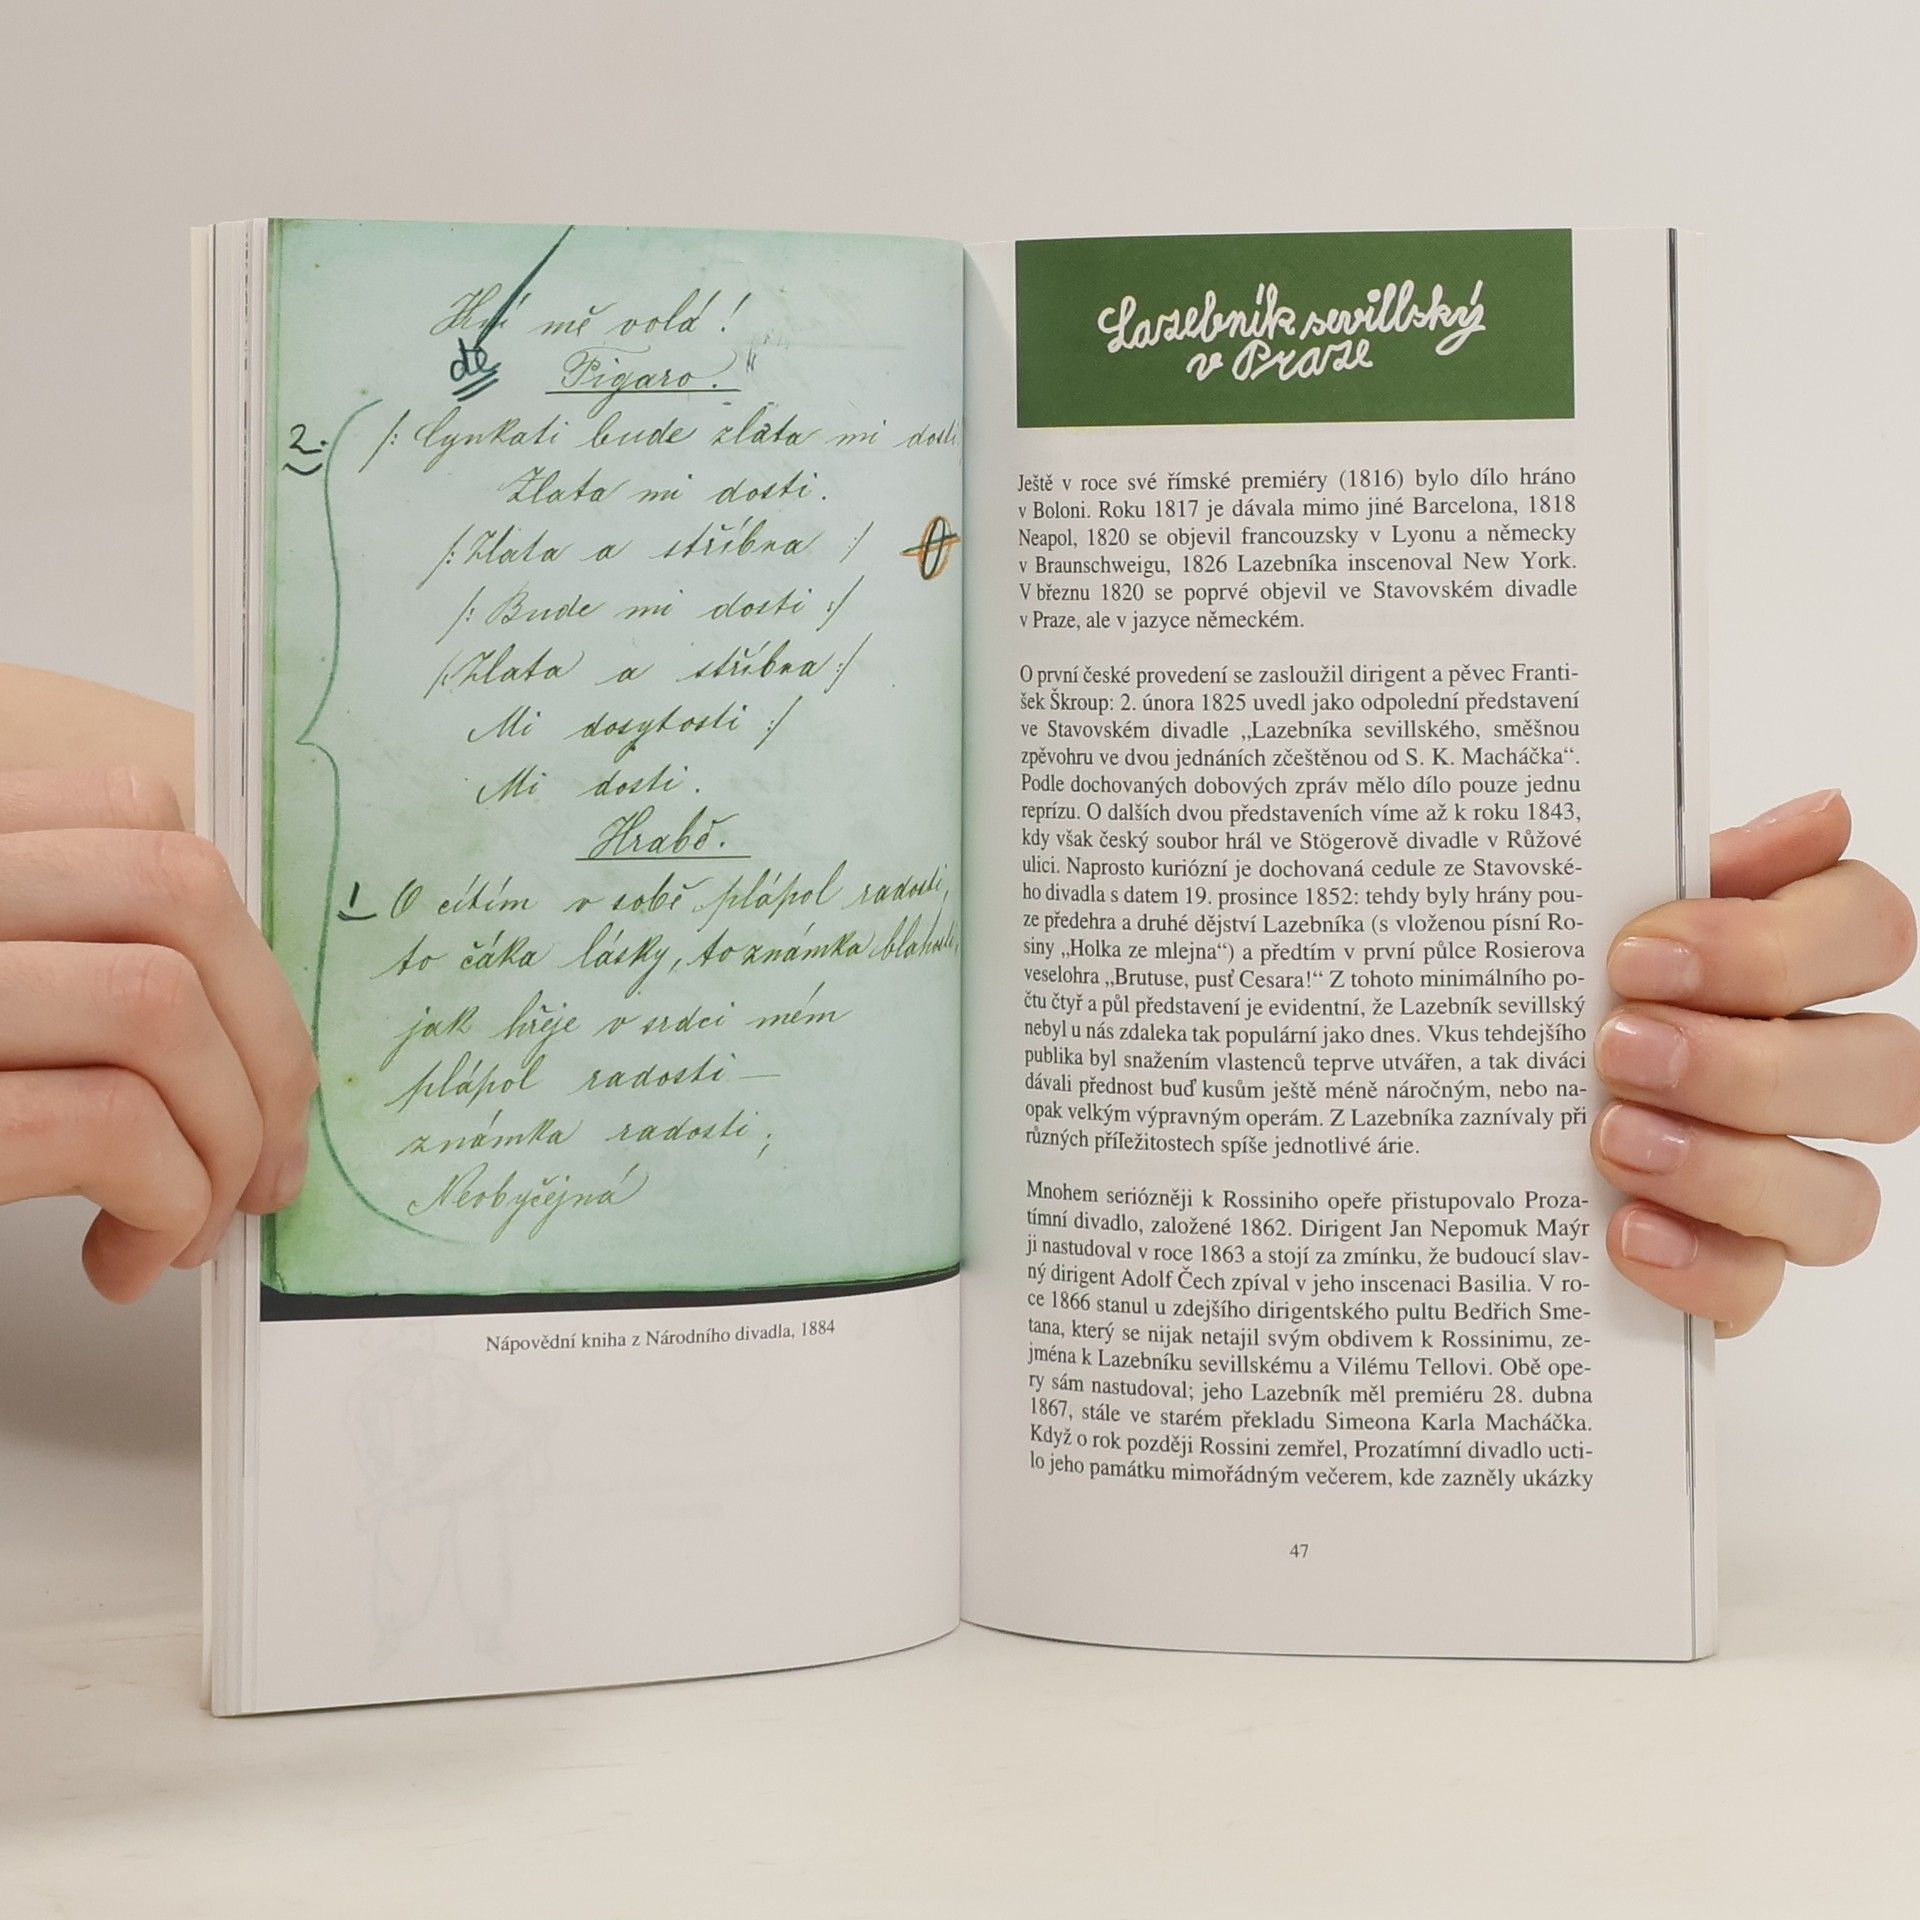 mě volá!
de
Figaro.
2.
/: Cynkati bude zlata mi dosti,
Zlata mi dosti.
/: Zlata a stříbra :/
/: Bude mi dosti :/
/: Zlata a stříbra :/
Mi dosytosti :/
Mi dosti.
Hrabě.
1
O cítím v sobě plápol radosti,
to čáka lásky, to známka blahosti,
jak hřeje v srdci mém
plápol radosti —
známka radosti;
Neobyčejná
Nápovědní kniha z Národního divadla, 1884
Lazebník sevillský
v Praze
Ještě v roce své římské premiéry (1816) bylo dílo hráno
v Boloni. Roku 1817 je dávala mimo jiné Barcelona, 1818
Neapol, 1820 se objevil francouzsky v Lyonu a německy
v Braunschweigu, 1826 Lazebníka inscenoval New York.
V březnu 1820 se poprvé objevil ve Stavovském divadle
v Praze, ale v jazyce německém.
O první české provedení se zasloužil dirigent a pěvec Franti-
šek Škroup: 2. února 1825 uvedl jako odpolední představení
ve Stavovském divadle „Lazebníka sevillského, směšnou
zpěvohru ve dvou jednáních zčeštěnou od S. K. Macháčka“.
Podle dochovaných dobových zpráv mělo dílo pouze jednu
reprízu. O dalších dvou představeních víme až k roku 1843,
kdy však český soubor hrál ve Stögerově divadle v Růžové
ulici. Naprosto kuriózní je dochovaná cedule ze Stavovské-
ho divadla s datem 19. prosince 1852: tehdy byly hrány pou-
ze předehra a druhé dějství Lazebníka (s vloženou písní Ro-
siny „Holka ze mlejna“) a předtím v první půlce Rosierova
veselohra „Brutuse, pusť Cesara!“ Z tohoto minimálního po-
čtu čtyř a půl představení je evidentní, že Lazebník sevillský
nebyl u nás zdaleka tak populární jako dnes. Vkus tehdejšího
publika byl snažením vlastenců teprve utvářen, a tak diváci
dávali přednost buď kusům ještě méně náročným, nebo na-
opak velkým výpravným operám. Z Lazebníka zaznívaly při
různých příležitostech spíše jednotlivé árie.
Mnohem seriózněji k Rossiniho opeře přistupovalo Proza-
tímní divadlo, založené 1862. Dirigent Jan Nepomuk Maýr
ji nastudoval v roce 1863 a stojí za zmínku, že budoucí slav-
ný dirigent Adolf Čech zpíval v jeho inscenaci Basilia. V ro-
ce 1866 stanul u zdejšího dirigentského pultu Bedřich Sme-
tana, který se nijak netajil svým obdivem k Rossinimu, ze-
jména k Lazebníku sevillskému a Vilému Tellovi. Obě ope-
ry sám nastudoval; jeho Lazebník měl premiéru 28. dubna
1867, stále ve starém překladu Simeona Karla Macháčka.
Když o rok později Rossini zemřel, Prozatímní divadlo ucti-
lo jeho památku mimořádným večerem, kde zazněly ukázky
47